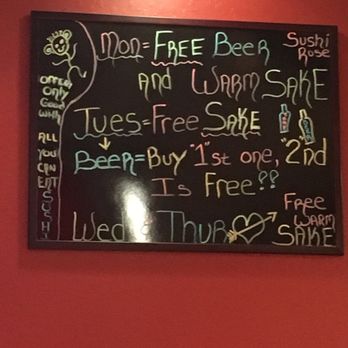 Mon=FREE BEER
AND WARM SAKE
Sushi
Rose
TUES=FREE SAKE
BEER=BUY "1"st one, "2nd
Is Free??
Wed & Thur
FREE
WARM
SAKE
OFFER
ONLY
Good
With
ALL
YOU
CAN
EAT
SUSHI